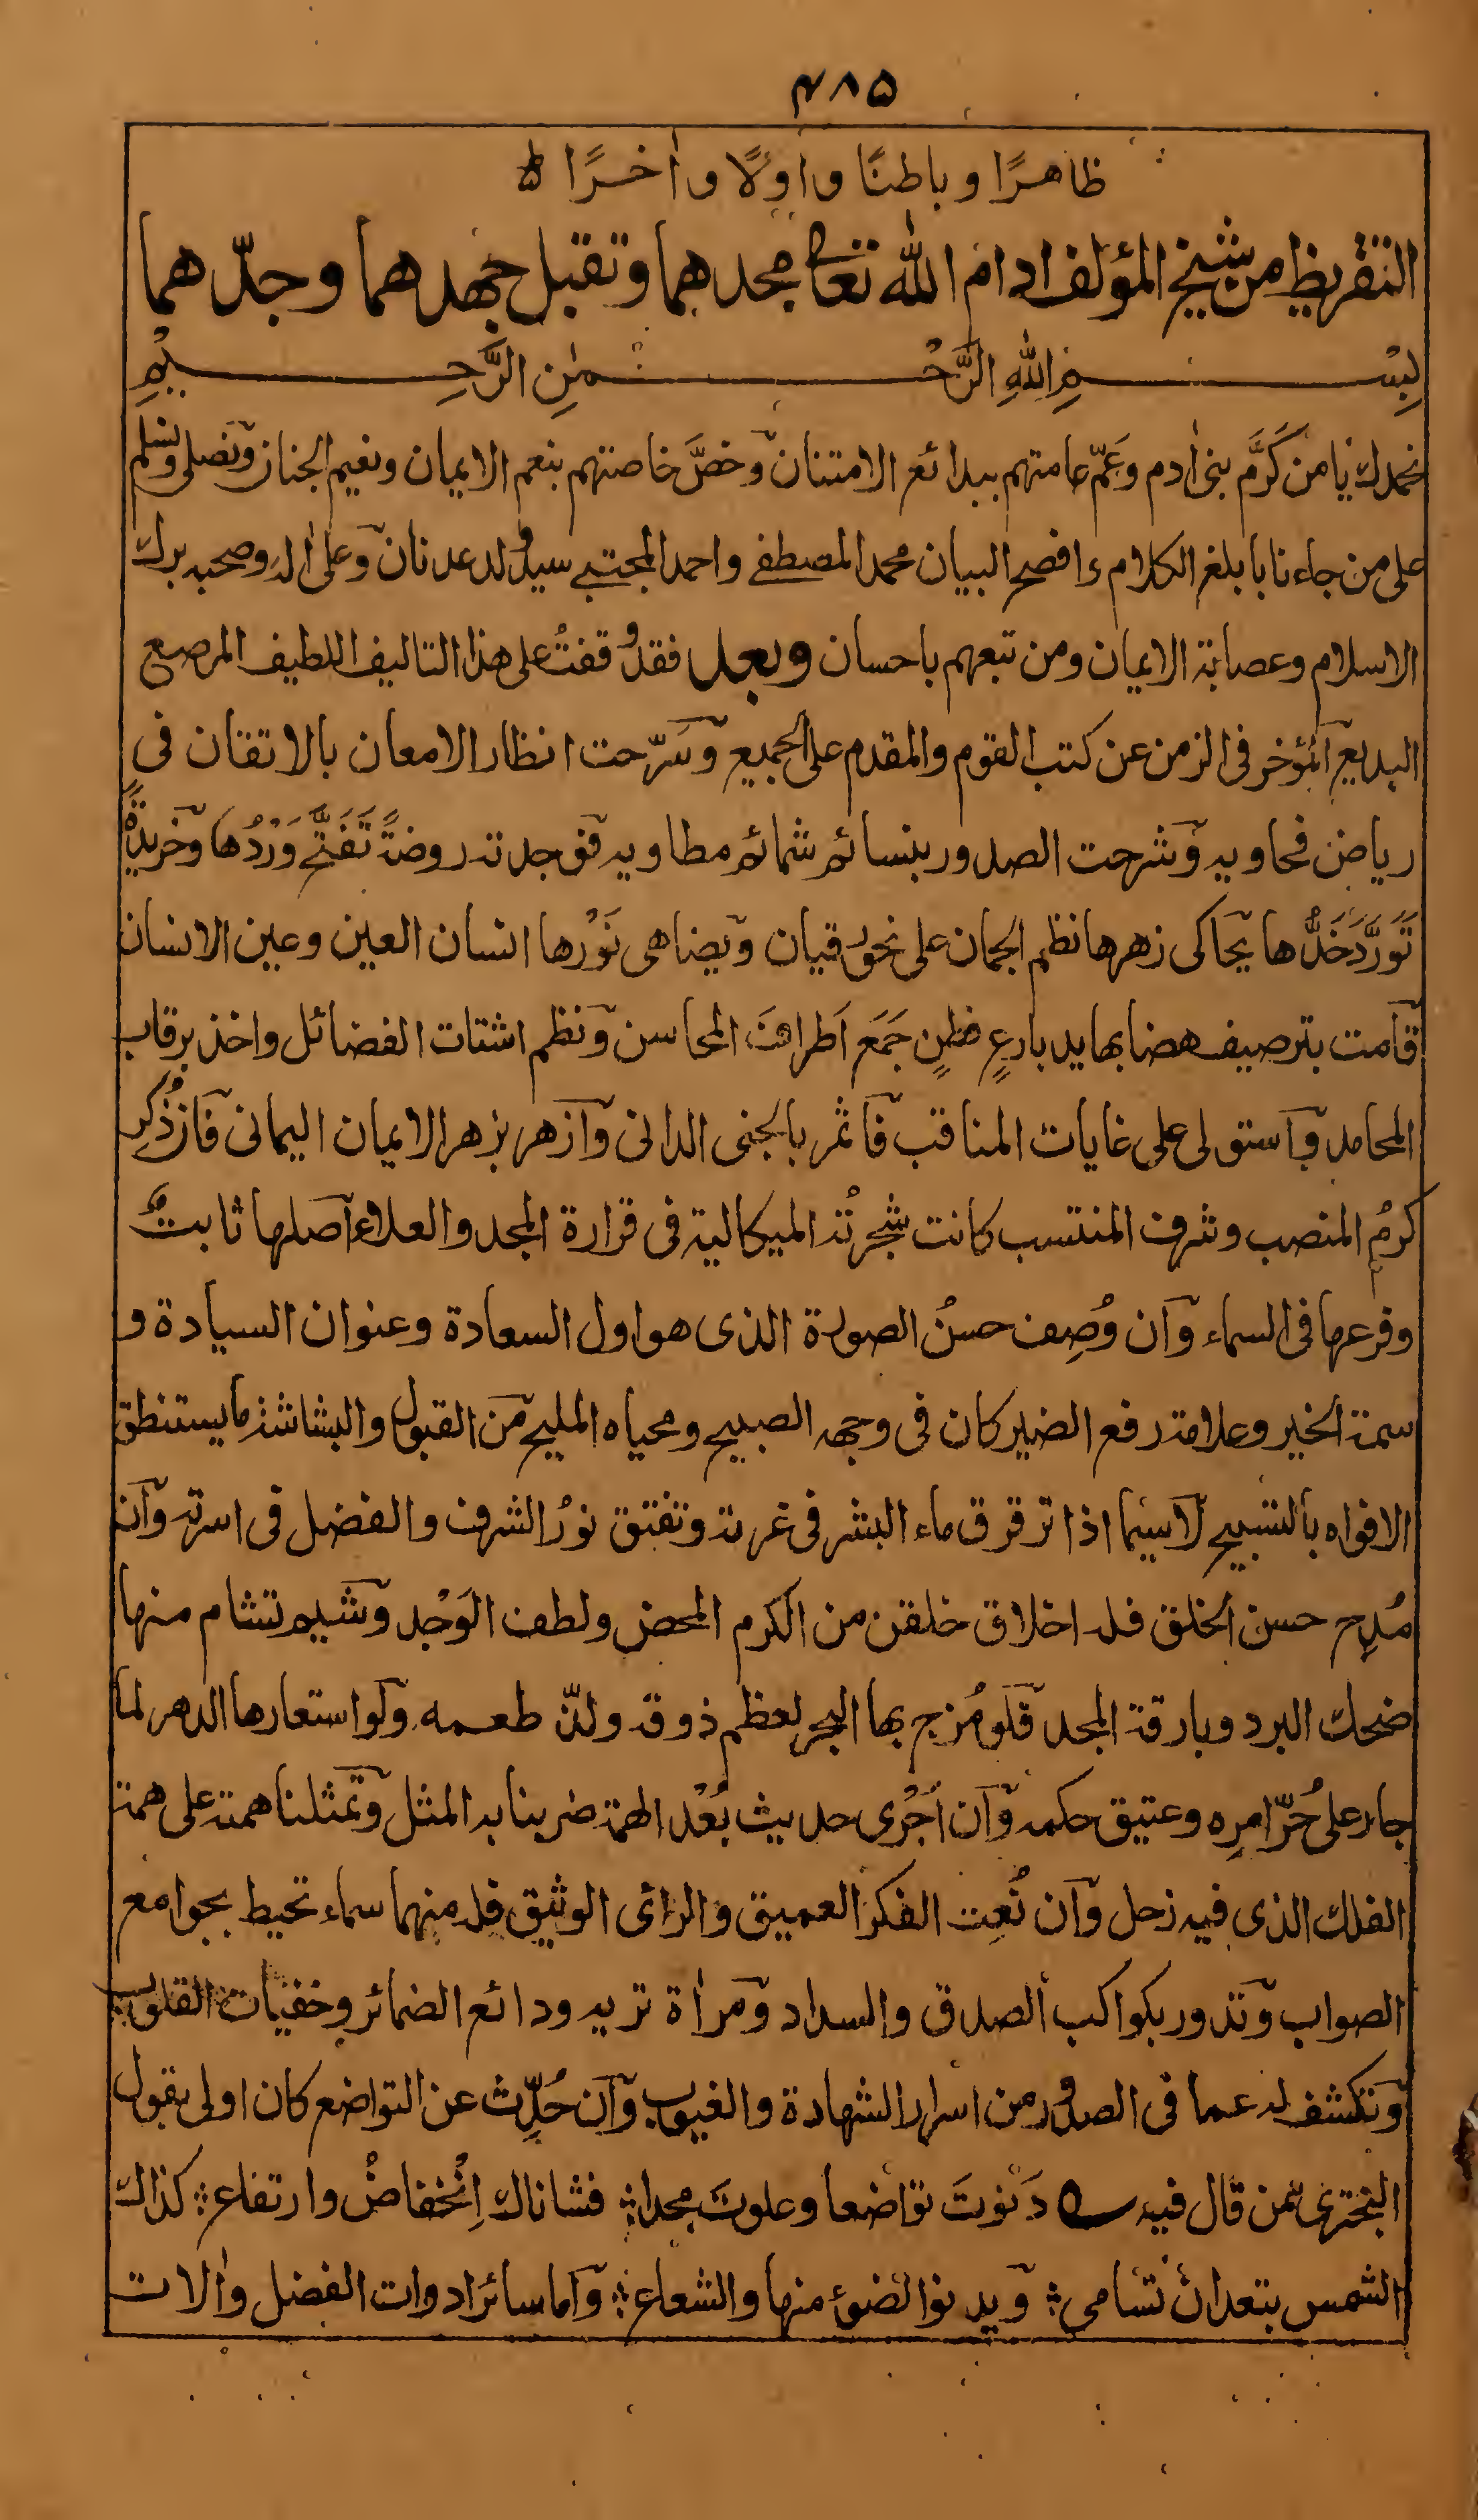 ۴۸۵
ظاهرًا و باطنًا و اوّلًا و اٰخرًا
التقريظ من شيخ المؤلف ادام الله تعالى مجدهما وتقبل جهدهما وجدّهما
بِسْمِ اللهِ الرَّحْمٰنِ الرَّحِيْمِ
نحمدك يا من كَرَّم بنى اٰدم وعَمّ عامتهم ببدائع الامتنان وخصَّ خاصتهم بنعم الايمان ونعيم الجنان ونصلى ونسلم
على من جاءنا بابلغ الكلام وافصح البيان محمد المصطفے واحمد المجتبے سيد ولد عدنان وعلى اٰله وصحبه برك
الاسلام وعصابة الايمان ومن تبعهم باحسان وبعد فقد وقفتُ على هذا التاليف اللطيف المرصع
البديع المؤخر فى الزمن عن كتب القوم والمقدم على الجميع وسَرّحت انظار الامعان بالاتقان فى
رياض فحاويه وشرحت الصدور بنسائم شمائم مطاويه فوجدته روضةً تَفَتَّح وَرْدُها وخريدةً
تَوَرَّدَ خَدُّها يحاكى زهرها نظم الجمان على نحور قيان ويضاهى نَوْرها انسان العين وعين الانسان
قامت بترصيف هضابها يد بارعٍ فطنٍ جَمَعَ اَطرافَ المحاسن ونظم اشتات الفضائل واخذ برقاب
المحامد واستولى على غايات المناقب فاثمر بالجنى الدانى وازهر بزهر الايمان اليمانى فان ذُكِر
كرمُ المنصب وشرف المنتسب كانت شجرتُه الميكالية فى قرارة المجد والعلاء اصلها ثابتٌ
وفرعها فى السماء وان وُصِف حسنُ الصورة الذى هو اول السعادة وعنوان السيادة و
سمة الخير وعلامة رفع الضير كان فى وجهه الصبيح ومحياه المليح من القبول والبشاشة ما يستنطق
الافواه بالتسبيح لاسيما اذا ترقرق ماء البشر فى غرته وتفتق نورُ الشرف والفضل فى اسرته وان
مُدِح حسن الخلق فله اخلاق خلقن من الكرم المحض ولطف الوَجْد وشيم تشام منها
ضحك البرد وبارقة المجد فلو مُزج بها البحر لعظم ذوقه ولذّ طعمه ولو استعارها الدهر لما
جار على حُرّ امرِه وعتيق حكمه وان اُجْرى حديث بُعْد الهمة ضربنا به المثل وتمثلنا همته على همة
الفلك الذى فيه زحل وان نُعِت الفكر العميق والرائى الوثيق فله منهما سماء تحيط بجوامع
الصواب وتدور بكواكب الصدق والسداد ومراٰة تريه ودائع الضمائر وخفيات القلوب
وتكشف له عما فى الصدور من اسرار الشهادة والغيوب وان حُدِّث عن التواضع كان اولى بقول
البخترى ممن قال فيه دَنوتَ تواضعا وعلوتَ مجدا؞ فشاناك اِنْخفاضٌ وارتفاع؞ كذاك
الشمس يتعد ان تسامى؞ ويدنو الضوء منها والشعاع؞ واما سائر ادوات الفضل واٰلات